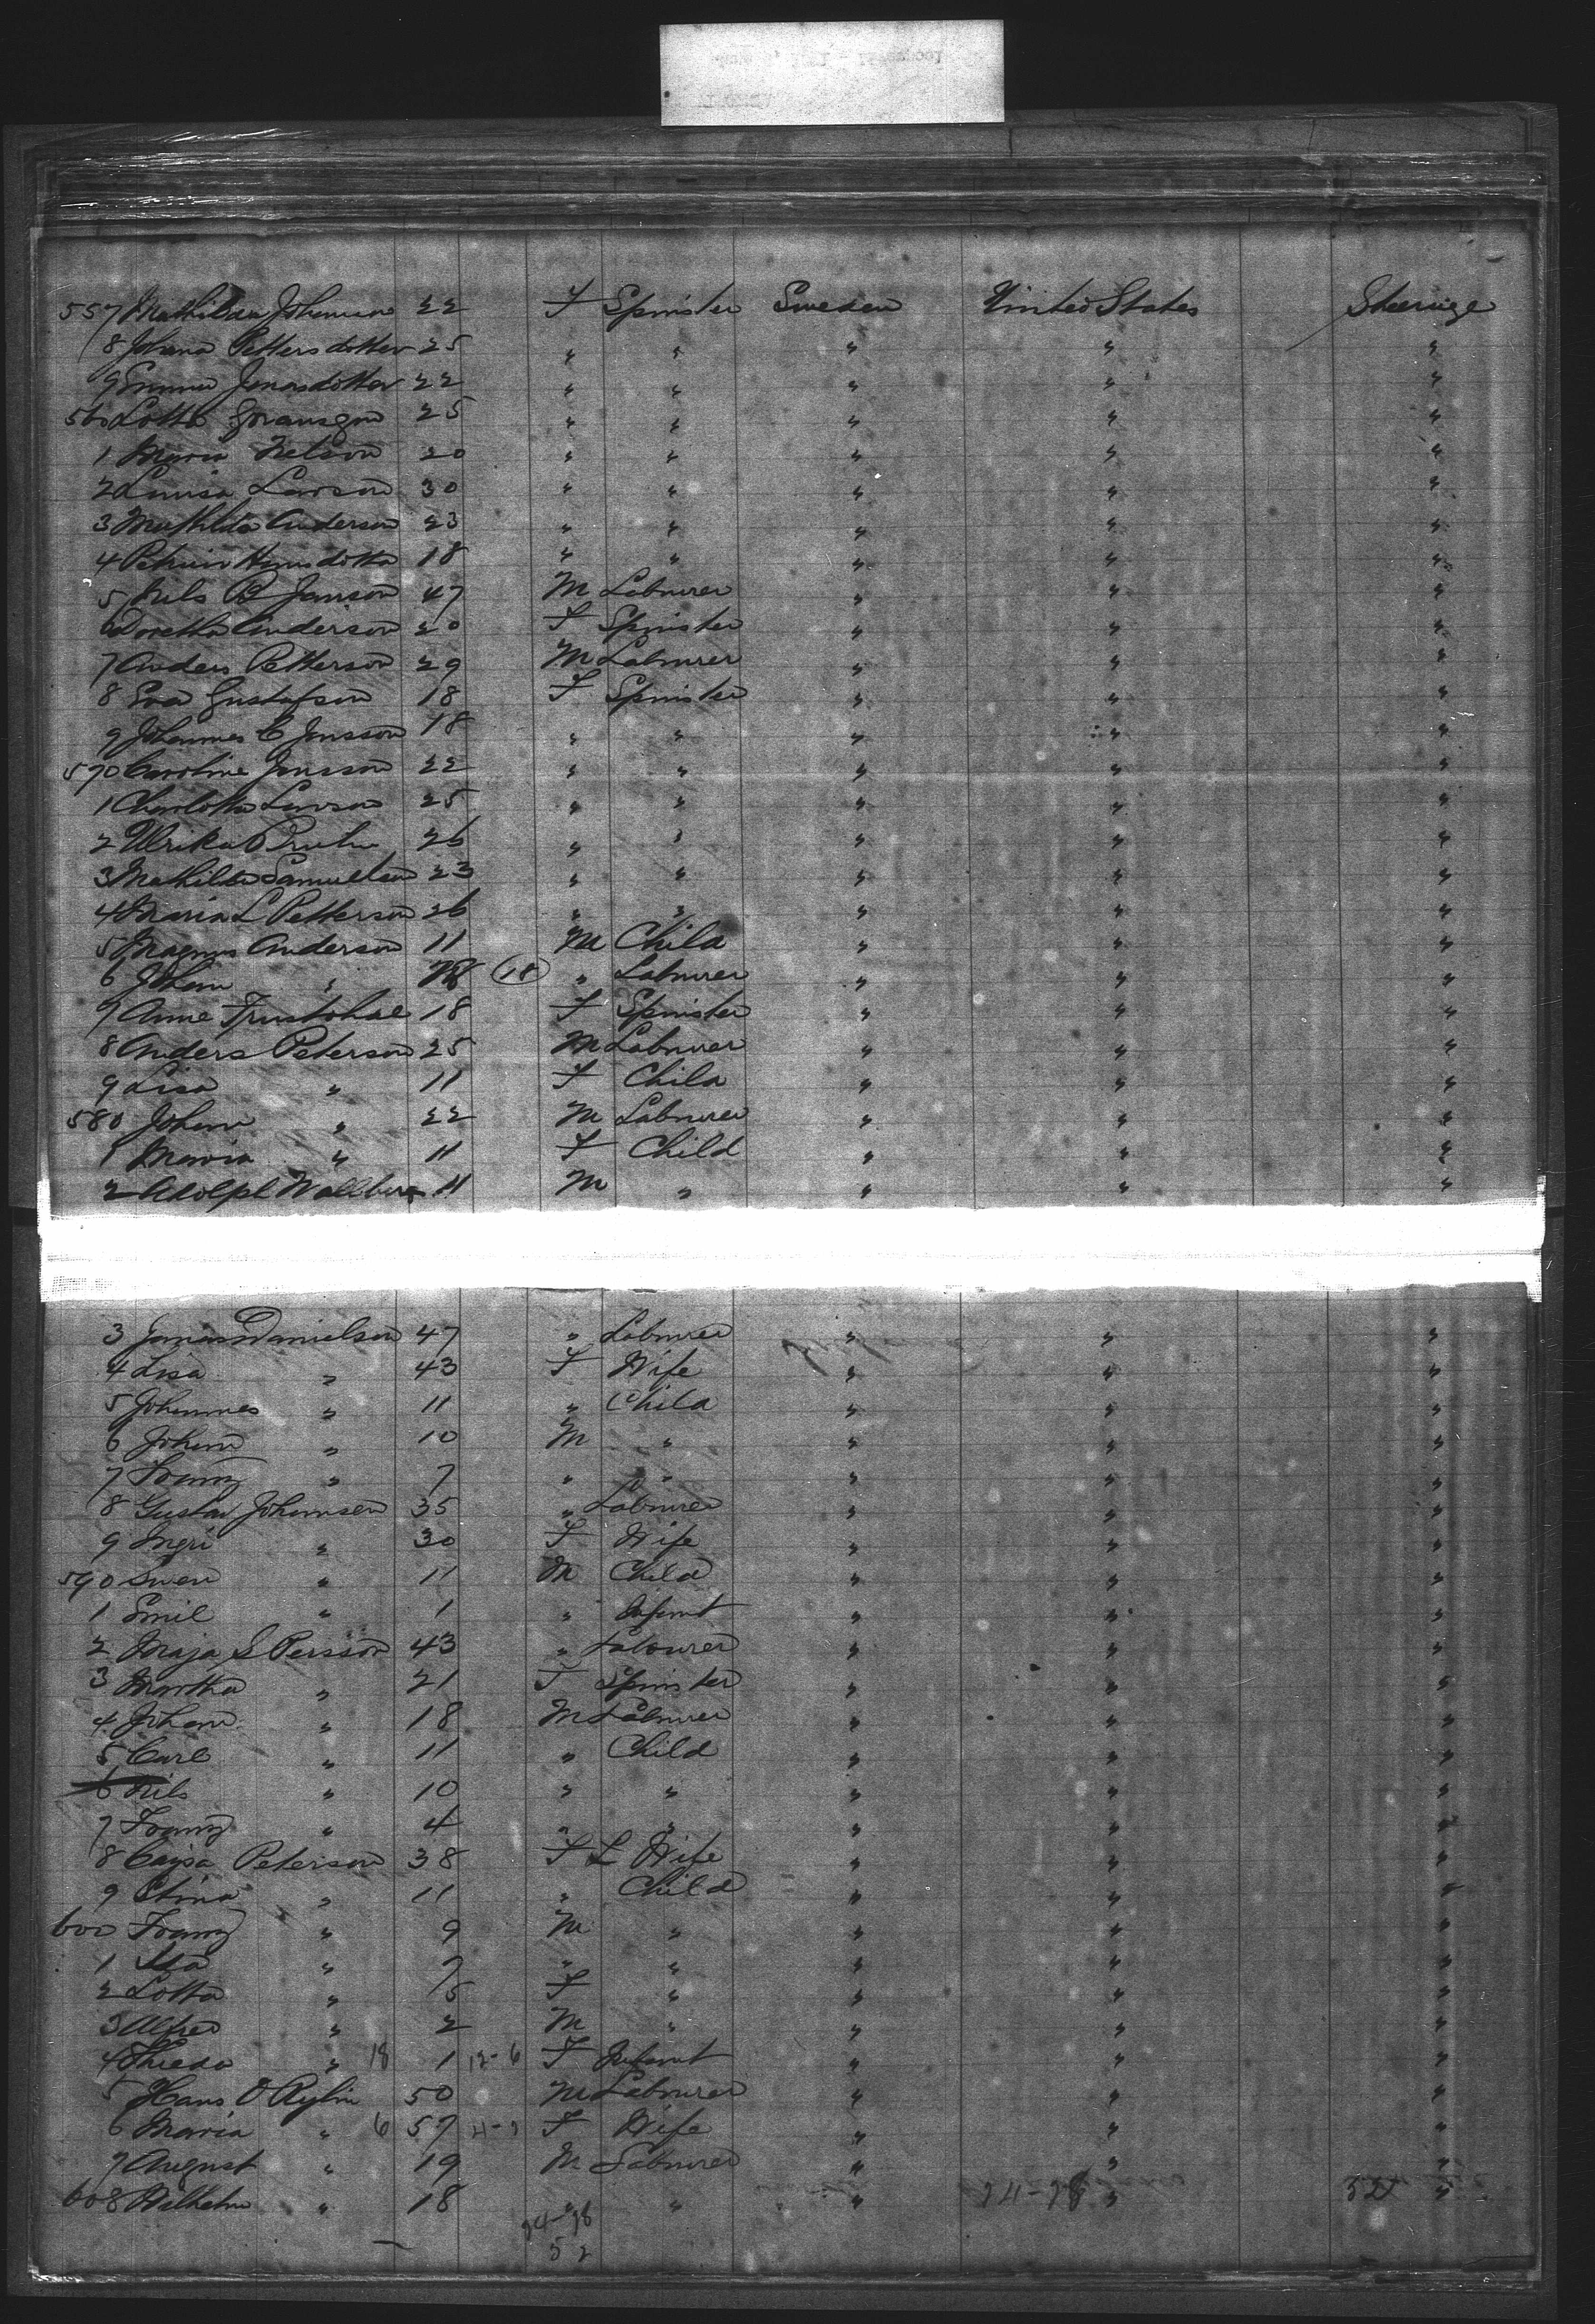 557 Mathilda Johanson 22 F Spinster Sweden United States Steerage
8 Johana Pettersdotter 25 " " " " "
9 Emma Jonasdotter 22 " " " " "
560 Lotta 25 " " " " "
1 Maria Nelson 20 " " " " "
2 Louisa Larson 30 " " " " "
3 Mathilda Anderson 23 " " " " "
4 18 " " " " "
5 Nils P Janson 47 M Labourer " " "
6 Doretha Anderson 20 F Spinster " " "
7 Anders Petterson 29 M Labourer " " "
8 Eva Gustafson 18 F Spinster " " "
9 Johannes C Jonsson 18 " " " " "
570 Caroline Jonsson 22 " " " " "
1 Charlotta Larson 25 " " " " "
2 Ulrika 26 " " " " "
3 Mathilda Samuelson 23 " " " " "
4 Maria L Petterson 26 " " " " "
5 Magnus Anderson 11 M Child " " "
6 Johan " 18 " Labourer " " "
7 Anne 18 F Spinster " " "
8 Anders Peterson 25 M Labourer " " "
9 Lisa " 11 F Child " " "
580 Johan " 22 M Labourer " " "
1 Maria " 11 F Child " " "
2 Adolph Wallberg 11 M " " " "
3 Jonas Danielson 47 " Labourer " " "
4 Lisa " 43 F Wife " " "
5 Johannes " 11 " Child " " "
6 Johan " 10 M " " " "
7 Franz " 7 " " " " "
8 Gustav Johansen 35 " Labourer " " "
9 Ingri " 30 F Wife " " "
590 Swen " 11 M Child " " "
1 Emil " 1 " Infant " " "
2 Maja S Persson 43 " Labourer " " "
3 Martha " 21 F Spinster " " "
4 Johan " 18 M Labourer " " "
5 Carl " 11 " Child " " "
6 Nils " 10 " " " " "
7 Franz " 4 " " " " "
8 Cajsa Peterson 38 F L Wife " " "
9 Stina " 11 " Child " " "
600 Franz " 9 M " " " "
1 " 7 " " " " "
2 Lotta " 5 F " " " "
3 Alfred " 2 M " " " "
4 " 18 1 12-6 F Infant " " "
5 Hans O Rylin 50 M Labourer " " "
6 Maria " 6 57 F Wife " " "
7 August " 19 M Labourer " " "
608 Wilhelm " 18 " " " 74-78 " 52 "
74-78
52